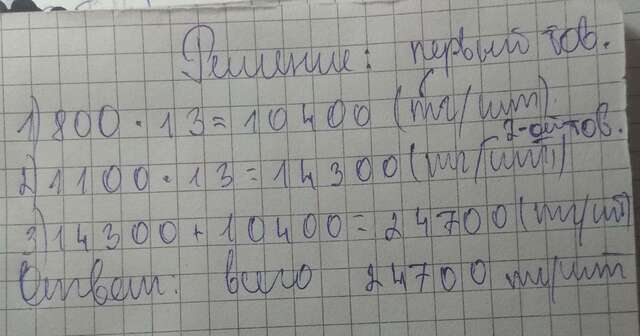 Решение: первый тов.
1) 800 · 13 = 10400 (тг/шт)
2-ой тов.
2) 1100 · 13 = 14300 (тг/шт)
3) 14300 + 10400 = 24700 (тг/шт)
Ответ: всего 24700 тг/шт